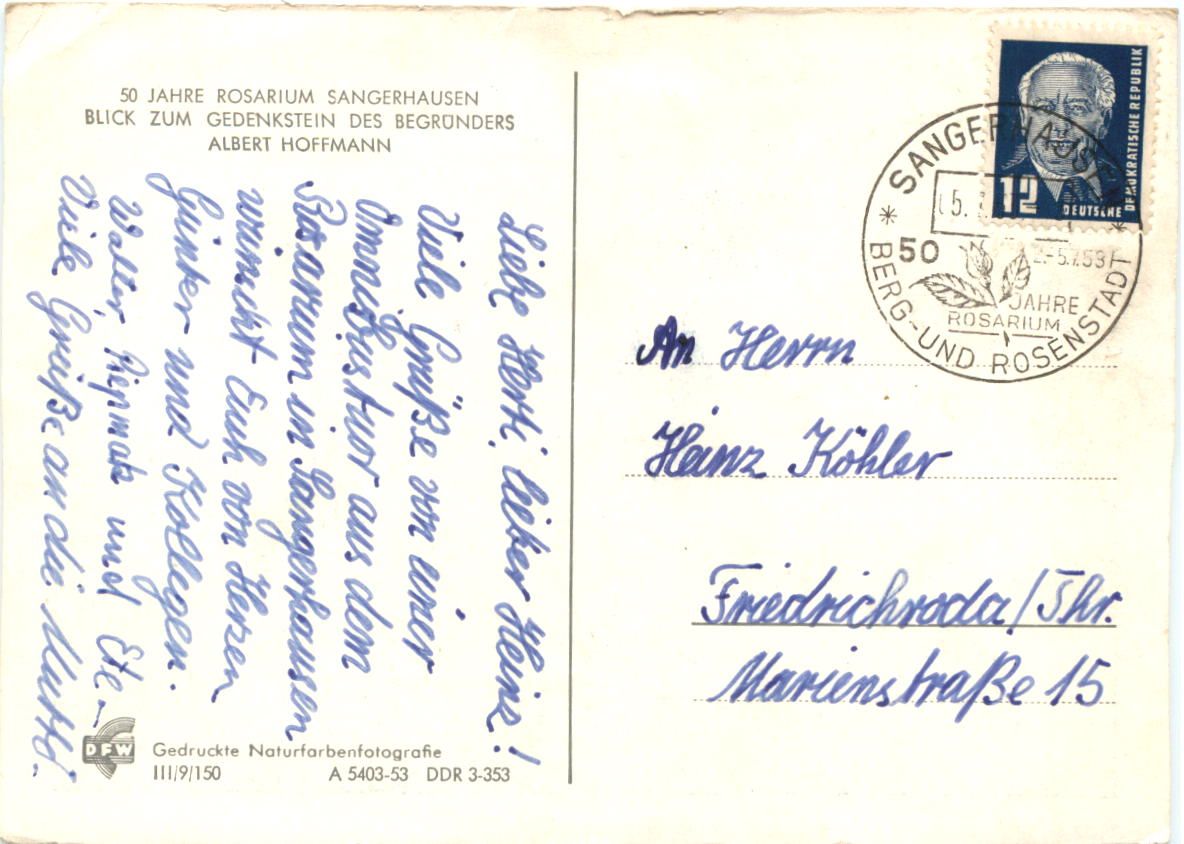 50 JAHRE ROSARIUM SANGERHAUSEN
BLICK ZUM GEDENKSTEIN DES BEGRÜNDERS
ALBERT HOFFMANN
Liebe Herti, lieber Heinz!
Viele Grüße von einer
Omnibustour aus dem
Rosarium in Sangerhausen
wünscht Euch von Herzen
Günter und Kollegen.
Walter, und Ete-
Viele Grüße an die
DFW
Gedruckte Naturfarbenfotografie
III/9/150 A 5403-53 DDR 3-353
12
DEUTSCHE DEMOKRATISCHE REPUBLIK
* SANGERHAUSEN *
5.
50 2.-5.7.53
JAHRE
ROSARIUM
BERG-UND ROSENSTADT
An Herrn
Heinz Köhler
Friedrichroda/Thr.
Marienstraße 15